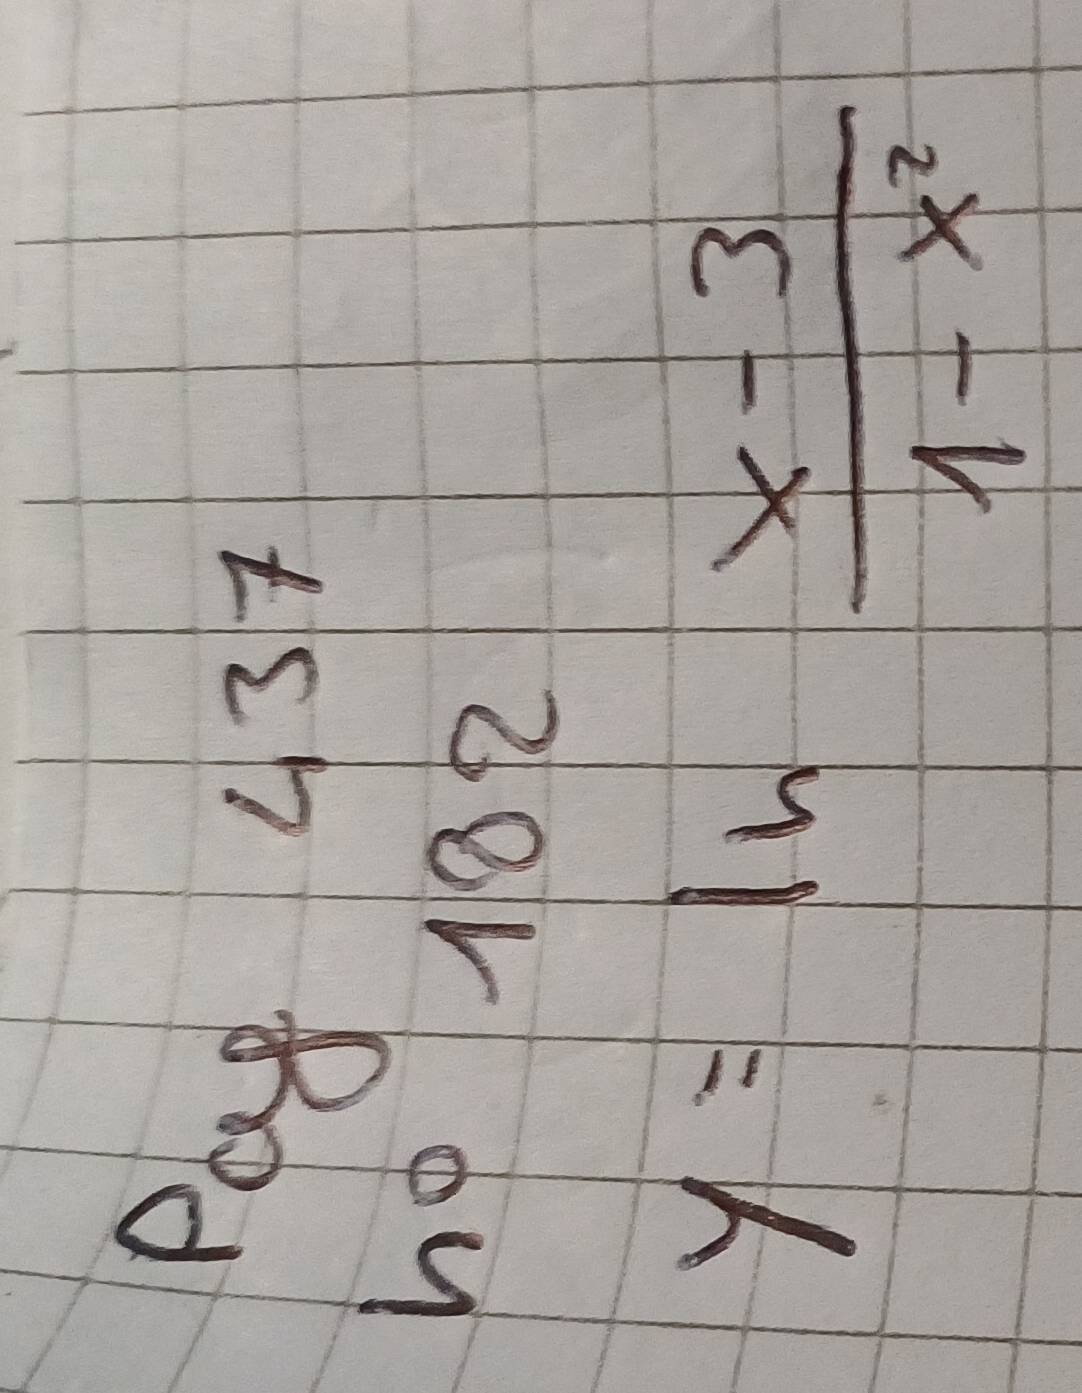 Pag 437
n° 182
y = ln x - 3 / 1 - x²